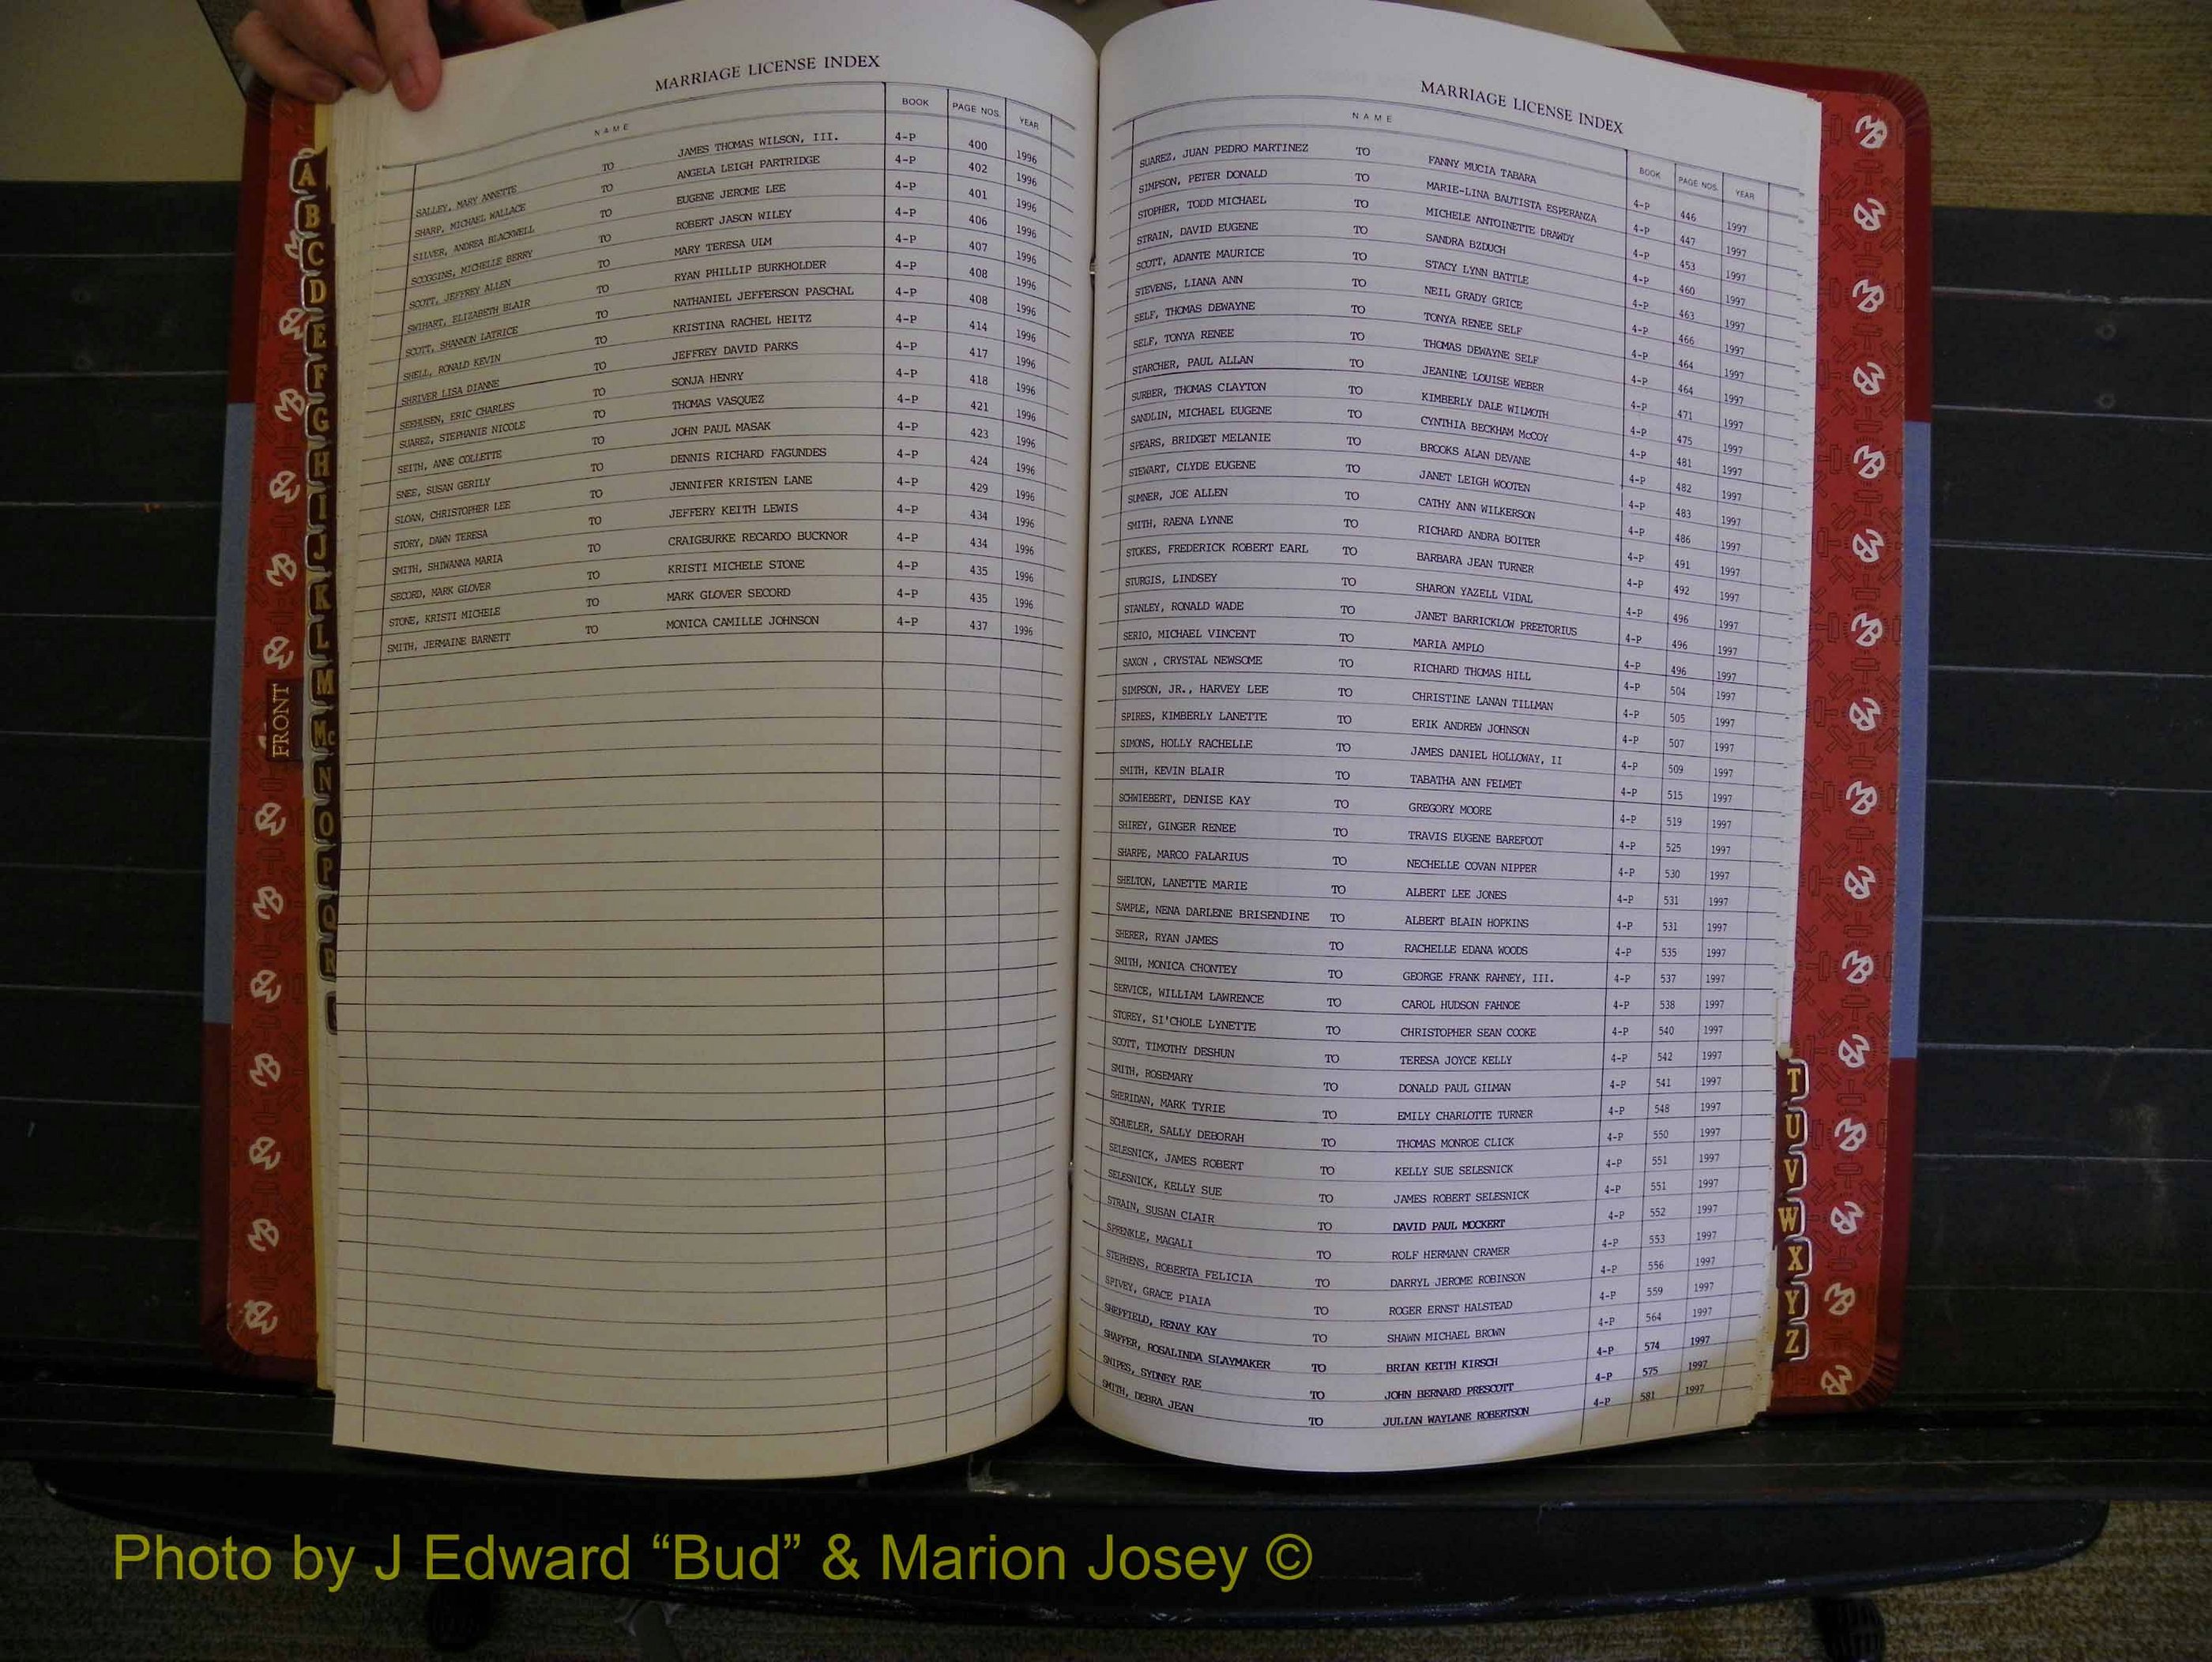 MARRIAGE LICENSE INDEX
NAME BOOK PAGE NOS. YEAR
SALLEY, MARY ANNETTE TO JAMES THOMAS WILSON, III. 4-P 400 1996
SHARP, MICHAEL WALLACE TO ANGELA LEIGH PARTRIDGE 4-P 402 1996
SILVER, ANDREA BLACKWELL TO EUGENE JEROME LEE 4-P 401 1996
SCOGGINS, MICHELLE BERRY TO ROBERT JASON WILEY 4-P 406 1996
SCOTT, JEFFREY ALLEN TO MARY TERESA ULM 4-P 407 1996
SWIHART, ELIZABETH BLAIR TO RYAN PHILLIP BURKHOLDER 4-P 408 1996
SCOTT, SHANNON LATRICE TO NATHANIEL JEFFERSON PASCHAL 4-P 408 1996
SHELL, RONALD KEVIN TO KRISTINA RACHEL HEITZ 4-P 414 1996
SHRIVER LISA DIANNE TO JEFFREY DAVID PARKS 4-P 417 1996
SEEHUSEN, ERIC CHARLES TO SONJA HENRY 4-P 418 1996
SUAREZ, STEPHANIE NICOLE TO THOMAS VASQUEZ 4-P 421 1996
SEITH, ANNE COLLETTE TO JOHN PAUL MASAK 4-P 423 1996
SNEE, SUSAN GERILY TO DENNIS RICHARD FAGUNDES 4-P 424 1996
SLOAN, CHRISTOPHER LEE TO JENNIFER KRISTEN LANE 4-P 429 1996
STORY, DAWN TERESA TO JEFFERY KEITH LEWIS 4-P 434 1996
SMITH, SHIWANNA MARIA TO CRAIGBURKE RECARDO BUCKNOR 4-P 434 1996
SECORD, MARK GLOVER TO KRISTI MICHELE STONE 4-P 435 1996
STONE, KRISTI MICHELE TO MARK GLOVER SECORD 4-P 435 1996
SMITH, JERMAINE BARNETT TO MONICA CAMILLE JOHNSON 4-P 437 1996
A
B
C
D
E
F
G
H
I
J
K
L
M
Mc
N
O
P
Q
R
FRONT
MARRIAGE LICENSE INDEX
NAME BOOK PAGE NOS. YEAR
SUAREZ, JUAN PEDRO MARTINEZ TO FANNY MUCIA TABARA 4-P 446 1997
SIMPSON, PETER DONALD TO MARIE-LINA BAUTISTA ESPERANZA 4-P 447 1997
STOPHER, TODD MICHAEL TO MICHELE ANTOINETTE DRAWDY 4-P 453 1997
STRAIN, DAVID EUGENE TO SANDRA BZDUCH 4-P 460 1997
SCOTT, ADANTE MAURICE TO STACY LYNN BATTLE 4-P 463 1997
STEVENS, LIANA ANN TO NEIL GRADY GRICE 4-P 466 1997
SELF, THOMAS DEWAYNE TO TONYA RENEE SELF 4-P 464 1997
SELF, TONYA RENEE TO THOMAS DEWAYNE SELF 4-P 464 1997
STARCHER, PAUL ALLAN TO JEANINE LOUISE WEBER 4-P 471 1997
SURBER, THOMAS CLAYTON TO KIMBERLY DALE WILMOTH 4-P 475 1997
SANDLIN, MICHAEL EUGENE TO CYNTHIA BECKHAM McCOY 4-P 481 1997
SPEARS, BRIDGET MELANIE TO BROOKS ALAN DEVANE 4-P 482 1997
STEWART, CLYDE EUGENE TO JANET LEIGH WOOTEN 4-P 483 1997
SUMNER, JOE ALLEN TO CATHY ANN WILKERSON 4-P 486 1997
SMITH, RAENA LYNNE TO RICHARD ANDRA BOITER 4-P 491 1997
STOKES, FREDERICK ROBERT EARL TO BARBARA JEAN TURNER 4-P 492 1997
STURGIS, LINDSEY TO SHARON YAZELL VIDAL 4-P 496 1997
STANLEY, RONALD WADE TO JANET BARRICKLOW PREETORIUS 4-P 496 1997
SERIO, MICHAEL VINCENT TO MARIA AMPLO 4-P 496 1997
SAXON , CRYSTAL NEWSOME TO RICHARD THOMAS HILL 4-P 504 1997
SIMPSON, JR., HARVEY LEE TO CHRISTINE LANAN TILLMAN 4-P 505 1997
SPIRES, KIMBERLY LANETTE TO ERIK ANDREW JOHNSON 4-P 507 1997
SIMONS, HOLLY RACHELLE TO JAMES DANIEL HOLLOWAY, II 4-P 509 1997
SMITH, KEVIN BLAIR TO TABATHA ANN FELMET 4-P 515 1997
SCHWIEBERT, DENISE KAY TO GREGORY MOORE 4-P 519 1997
SHIREY, GINGER RENEE TO TRAVIS EUGENE BAREFOOT 4-P 525 1997
SHARPE, MARCO FALARIUS TO NECHELLE COVAN NIPPER 4-P 530 1997
SHELTON, LANETTE MARIE TO ALBERT LEE JONES 4-P 531 1997
SAMPLE, NENA DARLENE BRISENDINE TO ALBERT BLAIN HOPKINS 4-P 531 1997
SHERER, RYAN JAMES TO RACHELLE EDANA WOODS 4-P 535 1997
SMITH, MONICA CHONTEY TO GEORGE FRANK RAHNEY, III. 4-P 537 1997
SERVICE, WILLIAM LAWRENCE TO CAROL HUDSON FAHNOE 4-P 538 1997
STOREY, SI'CHOLE LYNETTE TO CHRISTOPHER SEAN COOKE 4-P 540 1997
SCOTT, TIMOTHY DESHUN TO TERESA JOYCE KELLY 4-P 542 1997
SMITH, ROSEMARY TO DONALD PAUL GILMAN 4-P 541 1997
SHERIDAN, MARK TYRIE TO EMILY CHARLOTTE TURNER 4-P 548 1997
SCHUELER, SALLY DEBORAH TO THOMAS MONROE CLICK 4-P 550 1997
SELESNICK, JAMES ROBERT TO KELLY SUE SELESNICK 4-P 551 1997
SELESNICK, KELLY SUE TO JAMES ROBERT SELESNICK 4-P 551 1997
STRAIN, SUSAN CLAIR TO DAVID PAUL MOCKERT 4-P 552 1997
SPRENKLE, MAGALI TO ROLF HERMANN CRAMER 4-P 553 1997
STEPHENS, ROBERTA FELICIA TO DARRYL JEROME ROBINSON 4-P 556 1997
SPIVEY, GRACE PIAIA TO ROGER ERNST HALSTEAD 4-P 559 1997
SHEFFIELD, RENAY KAY TO SHAWN MICHAEL BROWN 4-P 564 1997
SHAFFER, ROSALINDA SLAYMAKER TO BRIAN KEITH KIRSCH 4-P 574 1997
SNIPES, SYDNEY RAE TO JOHN BERNARD PRESCOTT 4-P 575 1997
SMITH, DEBRA JEAN TO JULIAN WAYLANE ROBERTSON 4-P 581 1997
T
U
V
W
X
Y
Z
Photo by J Edward “Bud” & Marion Josey ©